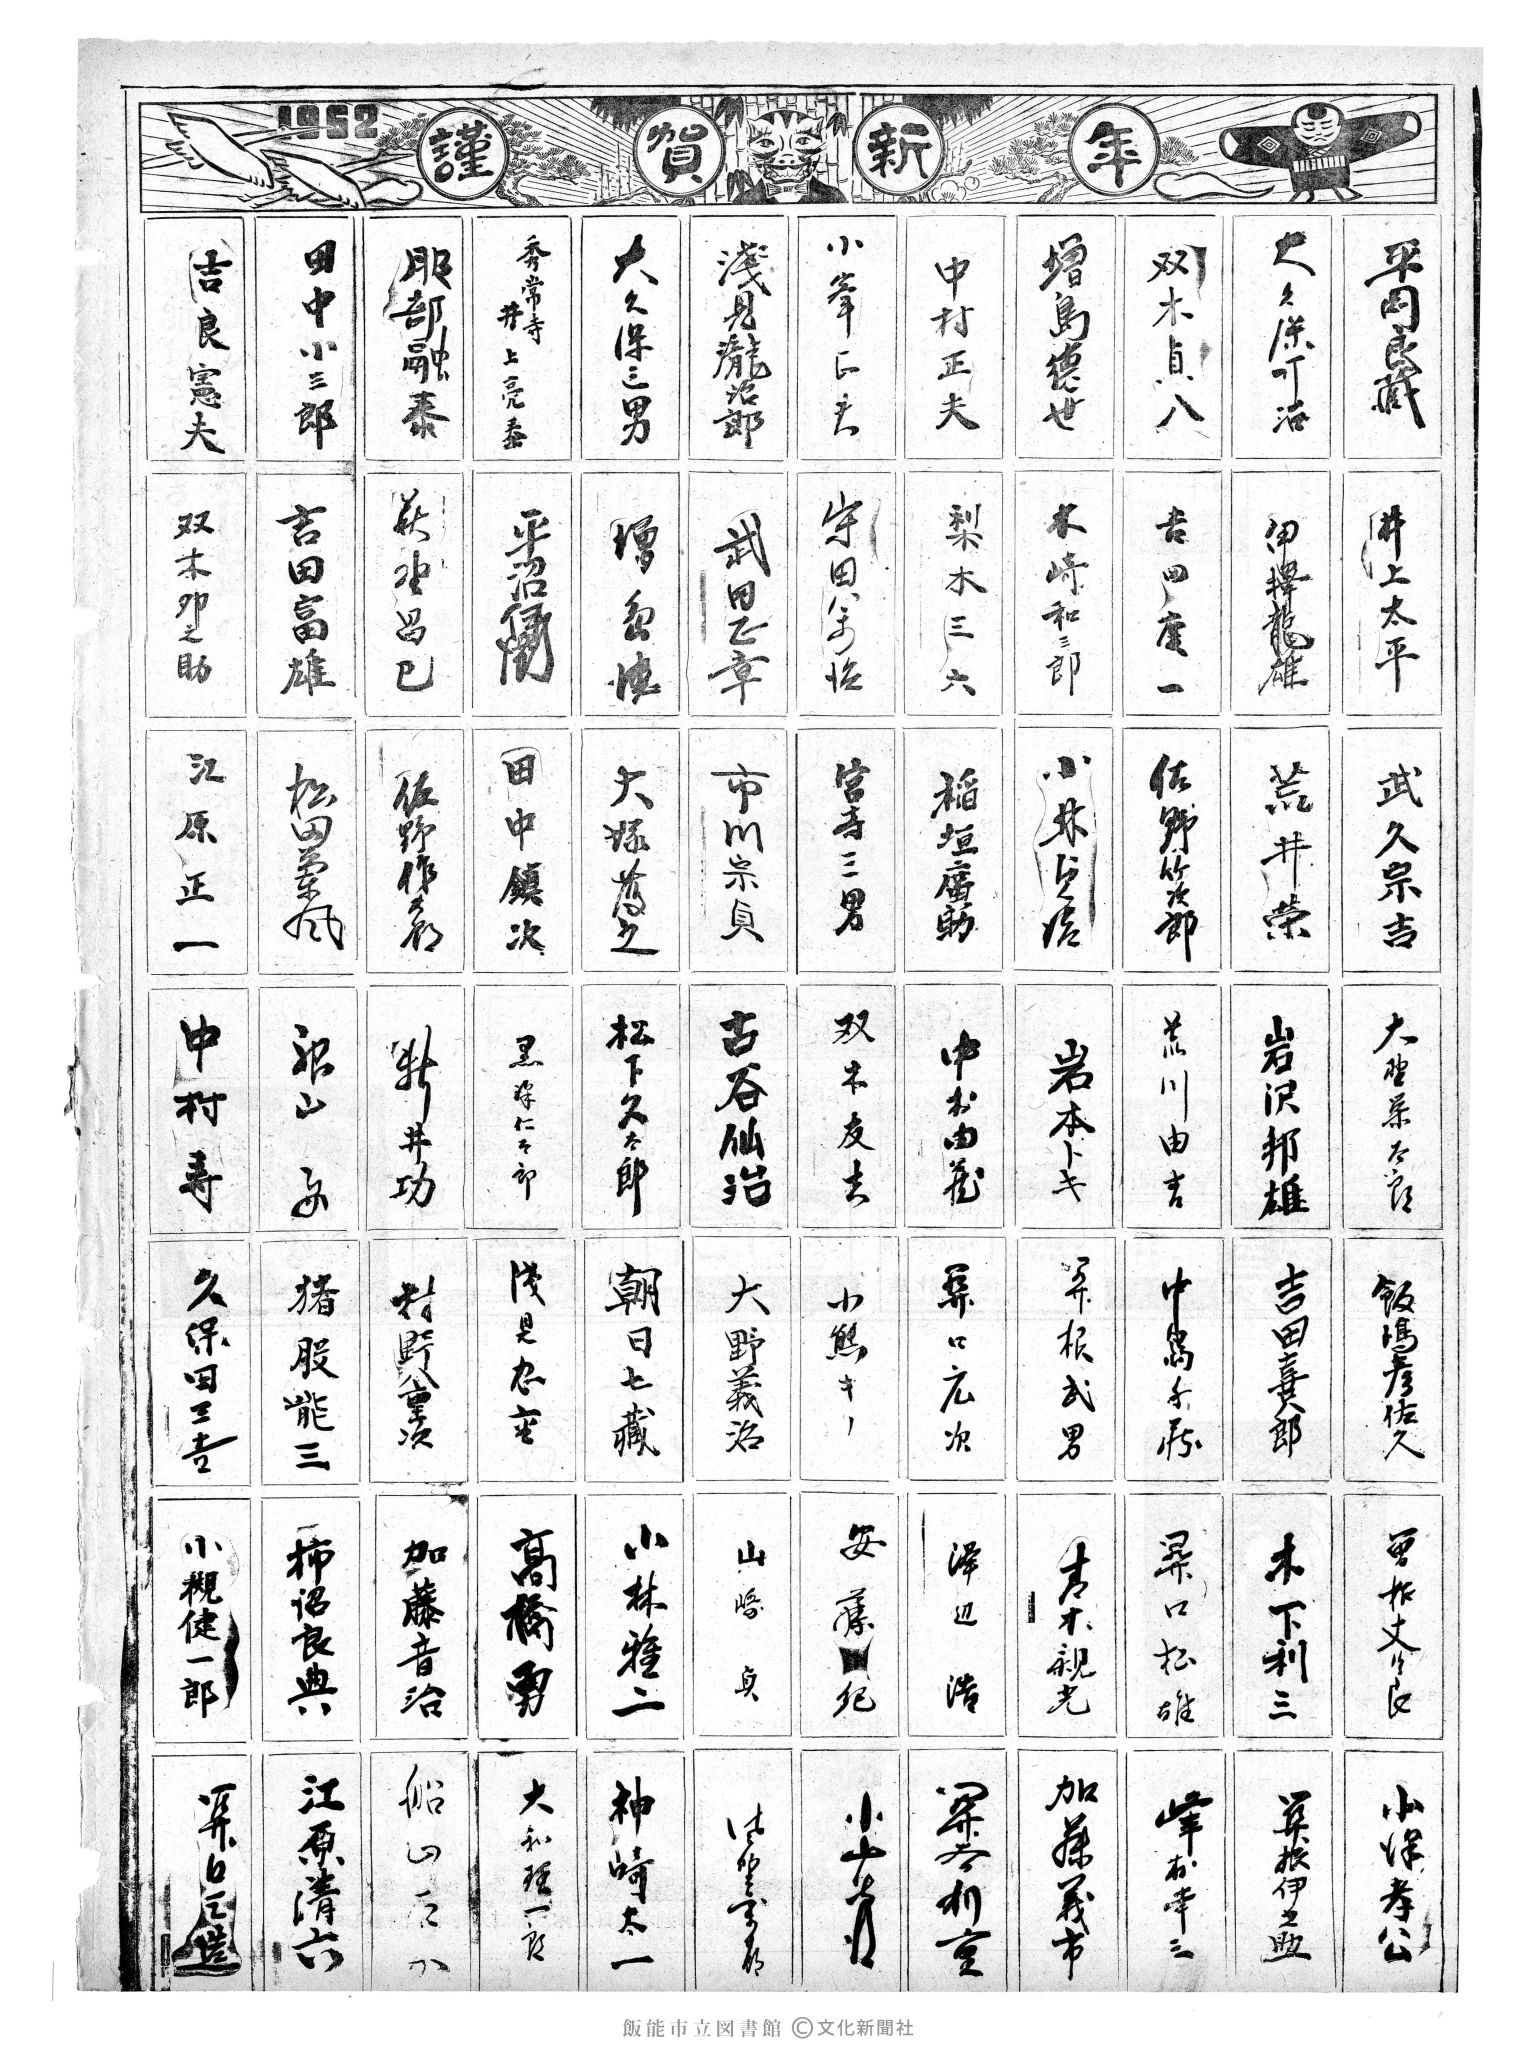 1962
謹賀新年
平岡良蔵
大久保可治
双木貞八
増島徳世
中村正夫
小峯正夫
浅見瀧治郎
大久保三男
秀常寺 井上亮泰
服部融泰
田中小三郎
吉良憲夫
井上太平
伊澤龍雄
吉田座一
水崎和三郎
梨木三六
武田正章
平沼
萩野昌巳
吉田富雄
双木卯之助
武久宗吉
荒井栄
佐野竹次郎
小林
稲垣廣助
宮寺三男
市川宗貞
大塚
田中鎮次
佐野作
松田蘭風
江原正一
大野栄太郎
岩沢邦雄
荒川由吉
岩本トキ
中村由蔵
双木友吉
古谷仙治
松下久太郎
黒澤仁太郎
新井功
中村寿
飯島彦佐久
吉田喜八郎
中島
関根武男
関口元次
小熊キノ
大野義治
朝日七蔵
浅見
村野重次
猪股能三
久保田三吉
曽根丈
木下利三
関口松雄
青木親光
澤辺浩
安藤 紀
山崎貞
小林雅二
高橋勇
加藤音治
柿沼良典
小槻健一郎
小澤孝公
関根伊之助
峰村幸三
加藤義市
小山
神崎太一
大和理一郎
船山
江原清六
関口
飯能市立図書館 ©文化新聞社